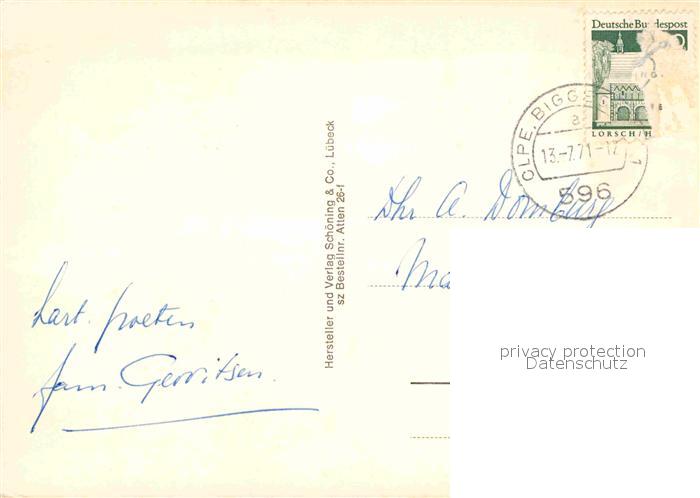 Deutsche Bundespost
LORSCH/H
OLPE, BIGGE
13.-7.71-17
1
596
Hersteller und Verlag Schöning & Co., Lübeck
sz Bestellnr. Atten 26-f
Dhr A.
Ma
hart. groeten
fam. Gerritsen.
privacy protection
Datenschutz